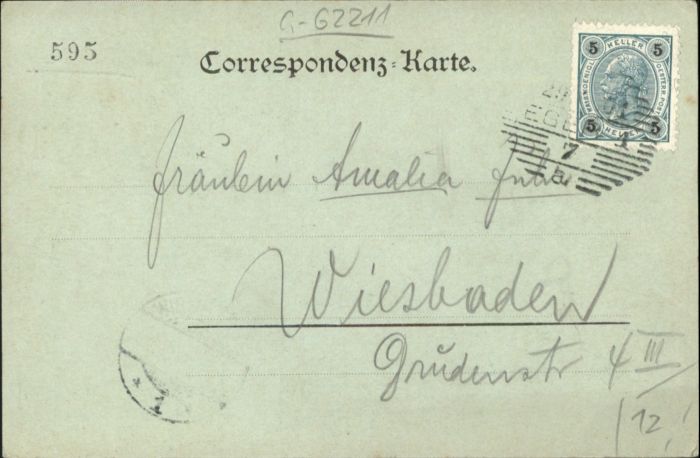 G-62211
595
Correspondenz-Karte.
5 HELLER 5
KAISERKOENIGL. OESTERR. POST
5 HELLER 5
7
Fräulein Amalia
Wiesbaden
Grudenstr 4 III
12